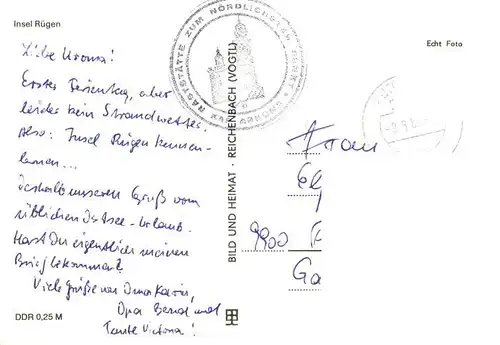 Insel Rügen
Liebe Uroma!
Erster Ferientag, aber
leider kein Strandwetter.
Also: Insel Rügen kennen-
lernen...
Deshalb unseren Gruß vom
üblichen Ostsee-Urlaub.
Hast Du eigentlich meinen
Brief bekommen?
Viele Grüße von Oma Karin,
Opa Bernd und
Tante Victoria!
DDR 0,25 M
RASTSTÄTTE ZUM NÖRDLICHSTEN
KAP ARKONA
BILD UND HEIMAT · REICHENBACH (VOGTL)
Echt Foto
Frau
9900